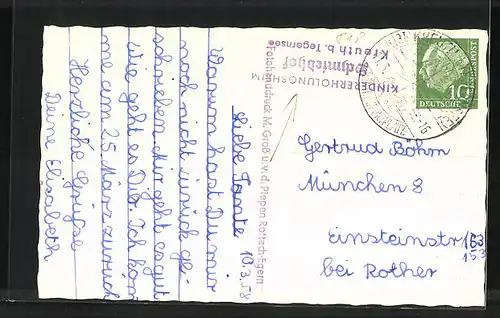 10.3.58
Liebe Tante
Warum hast Du mir
noch nicht zurück ge-
schrieben. Mir geht es gut
Wie geht es Dir. Ich kom
me am 25. März zurück
Herzliche Grüße
Deine Elisabeth
Fotohandduck M. Groß u. v. d. Piepen Rottach-Egern
KINDERERHOLUNGSHEIM
Schmiedhof
Kreuth b. Tegernsee
10
DEUTSCHE
Gertrud Böhm
München 8
Einsteinstr 153
153
bei Rother